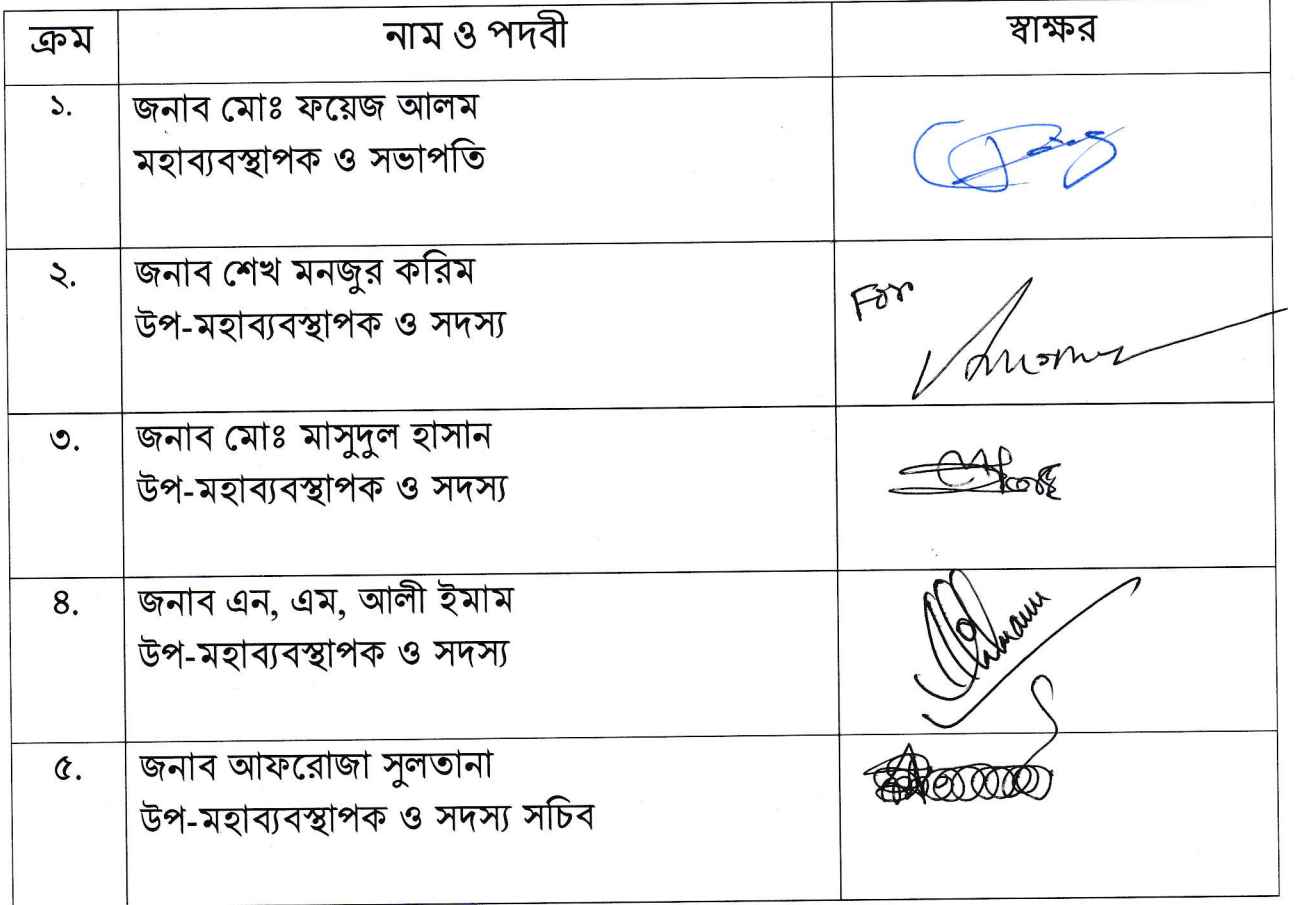 ক্রম নাম ও পদবী স্বাক্ষর
১. জনাব মোঃ ফয়েজ আলম
মহাব্যবস্থাপক ও সভাপতি
২. জনাব শেখ মনজুর করিম
উপ-মহাব্যবস্থাপক ও সদস্য
For
৩. জনাব মোঃ মাসুদুল হাসান
উপ-মহাব্যবস্থাপক ও সদস্য
৪. জনাব এন, এম, আলী ইমাম
উপ-মহাব্যবস্থাপক ও সদস্য
৫. জনাব আফরোজা সুলতানা
উপ-মহাব্যবস্থাপক ও সদস্য সচিব